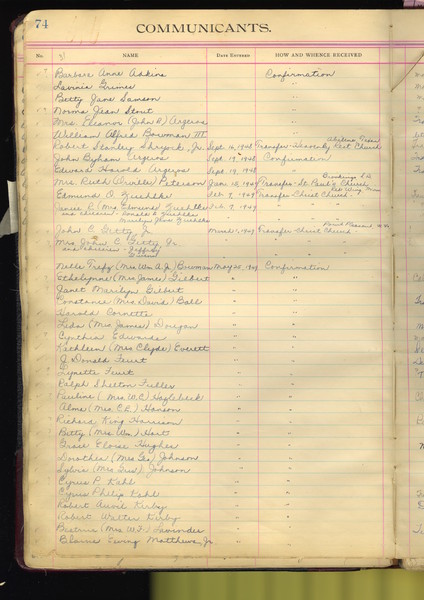 74
COMMUNICANTS.
No. NAME DATE ENTERED HOW AND WHENCE RECEIVED
Barbara Anne Adkins Confirmation
Lavinia Grimes "
Betty Jane Samson "
Norma Jean Stout "
Mrs. Eleanor (John R.) Argeros "
William Alfred Bowman III "
Abilene, Texas
Robert Stanley Shryock, Jr. Sept. 16, 1948 Transfer - Heavenly Rest Church
John Byham Argeros Sept. 19, 1948 Confirmation
Edward Harold Argeros Sept. 19, 1948 "
Brookings S.D.
Mrs. Ruth Orville Peterson Jan. 15, 1949 Transfer - St. Paul's Church
Edmund O. Feb. 7, 1949 Transfer Christ Church
(Mrs. Edmund) Feb. 7, 1949 "
and children - Donald
Marilyn Jean
Point Pleasant, W.Va
John C. Getty, Jr. March 1, 1949 Transfer Christ Church
Mrs. John C. Getty Jr. " "
and children - Jeffrey
Nelle Trefz (Mrs. Wm. A. Jr.) Bowman May 25, 1949 Confirmation
Ethelynne (Mrs. James) Gilbert " "
Janet Marilyn Gilbert " "
Constance (Mrs. David) Ball " "
Harold Cornette " "
Leda (Mrs. James) Donegan " "
Cynthia Edwards " "
Kathleen (Mrs. Clyde) Everett " "
J. Donald Feurt " "
Lynette Feurt " "
Ralph Shelton Fulles " "
Pauline (Mrs. W.C.) Hazlebeck " "
Alma (Mrs. C.E.) Hanson " "
Richard King Harrison " "
Betty (Mrs. Wm.) Hart " "
Grace Eloise Hughes " "
Dorothea (Mrs. Geo.) Johnson " "
Sylvia (Mrs. Gus) Johnson " "
Cyrus P. Kahl " "
Cyrus Philip Kahl " "
Robert Auvil Kirby " "
Robert Walter Kirby " "
Beatrice (Mrs. W.F.) Lavender " "
Blaine Ewing Matthews, Jr. " "